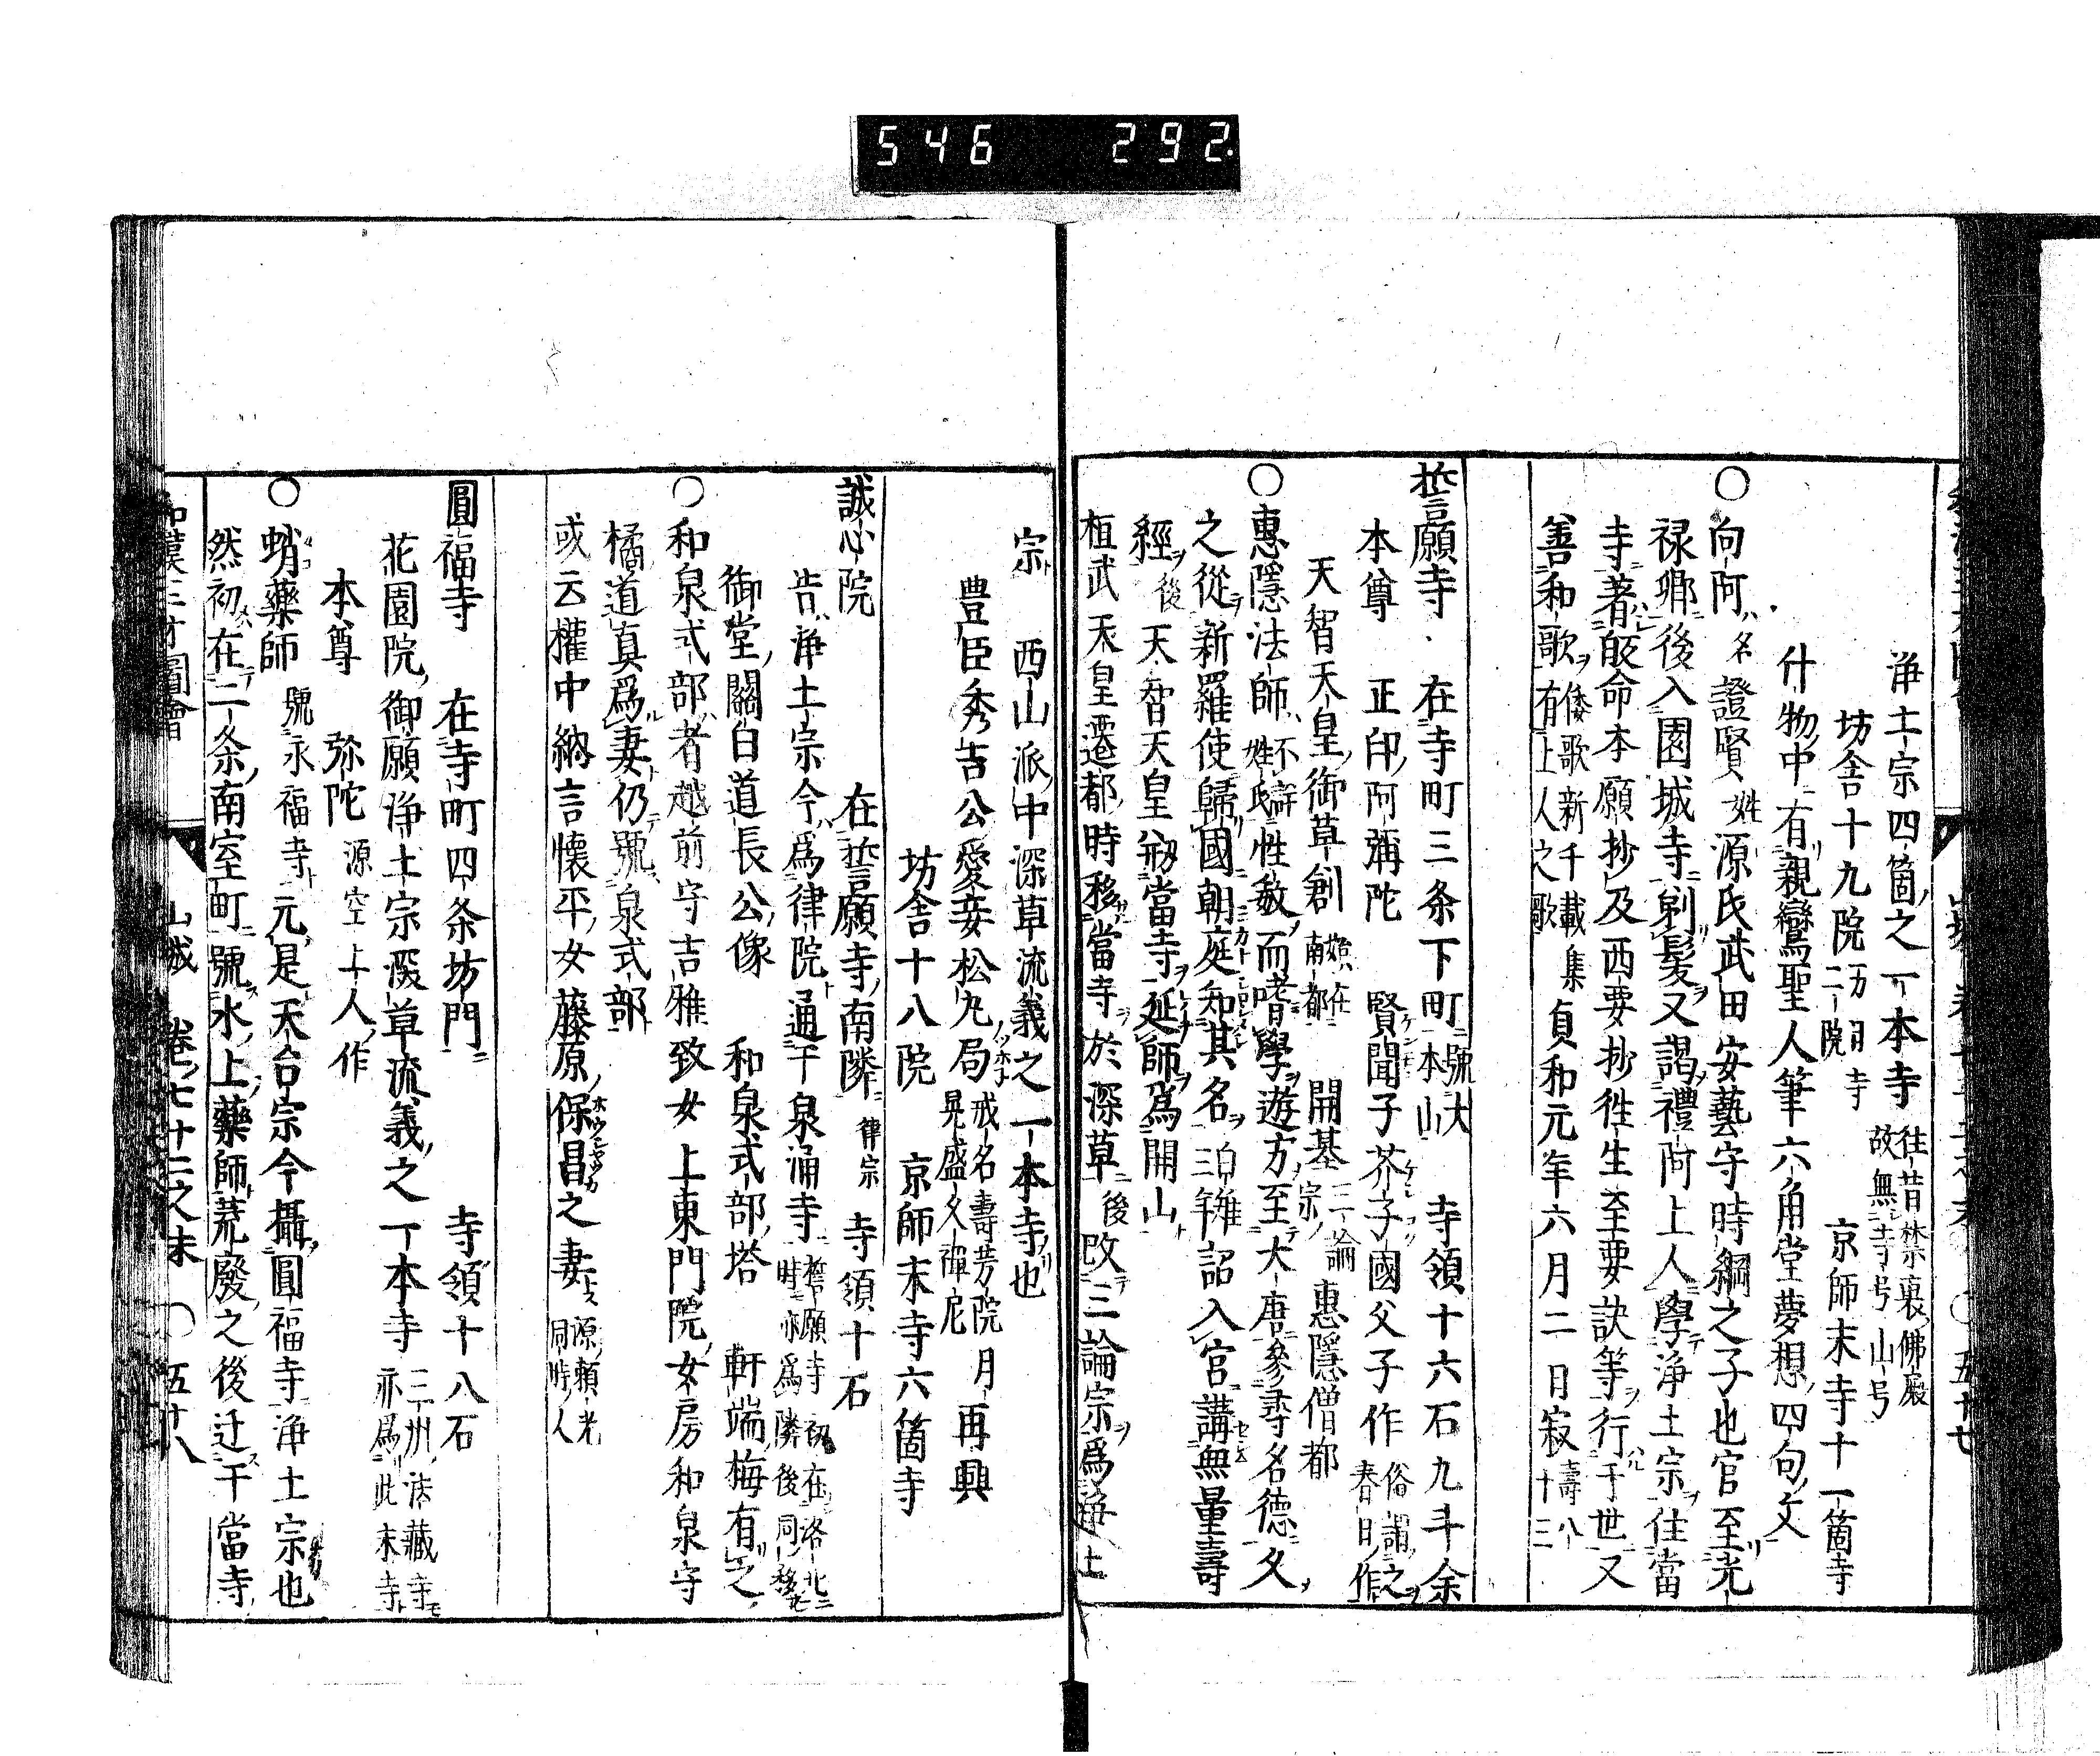 546 292
淨土宗四箇之一本寺 往昔禁裏佛殿故無寺号山号
坊舍十九院 京師末寺十一箇寺
什物中有親鸞聖人筆六角堂夢想四句文
○向阿 名證賢 姓源氏武田安藝守時綱之子也官至光
禄卿後入園城寺剃髪又謁禮阿上人學浄土宗住當
寺著皈命本願抄及西要抄徃生至要訣等行于世又
善和歌 倭歌新千載集有上人之歌 貞和元年六月二日寂 壽八十三
誓願寺 在寺町三条下町 號大本山 寺領十六石九斗余
本尊 正印阿彌陀 賢聞子芥子國父子作 俗謂之春日作
天智天皇御草創 始在南都 開基 三論宗 惠隱僧都
○惠隱法師 不詳姓氏 性敏而嗜學遊方至大唐參尋名德久
之從新羅使歸國朝庭知其名 白雉三年 詔入宮講無量壽
經 後天智天皇剏當寺延師爲開山
桓武天皇遷都時移當寺於深草 後改三論宗爲淨土
宗 西山派中深草流義之一本寺也
豊臣秀吉公愛妾松丸局 戒名壽芳院月晃盛久禪尼 再興
坊舍十八院 京師末寺六箇寺
誠心院 在誓願寺南隣 律宗 寺領十石
昔淨土宗今爲律院通于泉涌寺 誓願寺初在洛北時亦爲隣後同移
御堂關白道長公像 和泉式部塔 軒端梅有之
○和泉式部者越前守吉雅致女上東門院女房和泉守
橘道真爲妻仍號泉式部
或云權中納言懷平女藤原保昌之妻 源頼光同時人
圓福寺 在寺町四条坊門 寺領十八石
花園院御願淨土宗深草流義之一本寺 三州法藏寺亦爲此末寺
本尊 弥陀 源空上人作
○蛸藥師 號永福寺 元是天台宗今攝圓福寺淨土宗也
然初在二条南室町號水上藥師荒廢之後迁于當寺
和漢三才圖會 山城 卷七十二之末 ○五十八